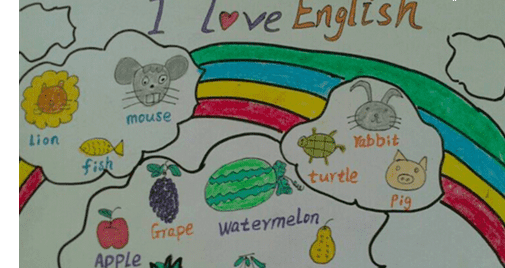 I love English
mouse
Lion
fish
Rabbit
turtle
Pig
Grape
Watermelon
APPLE